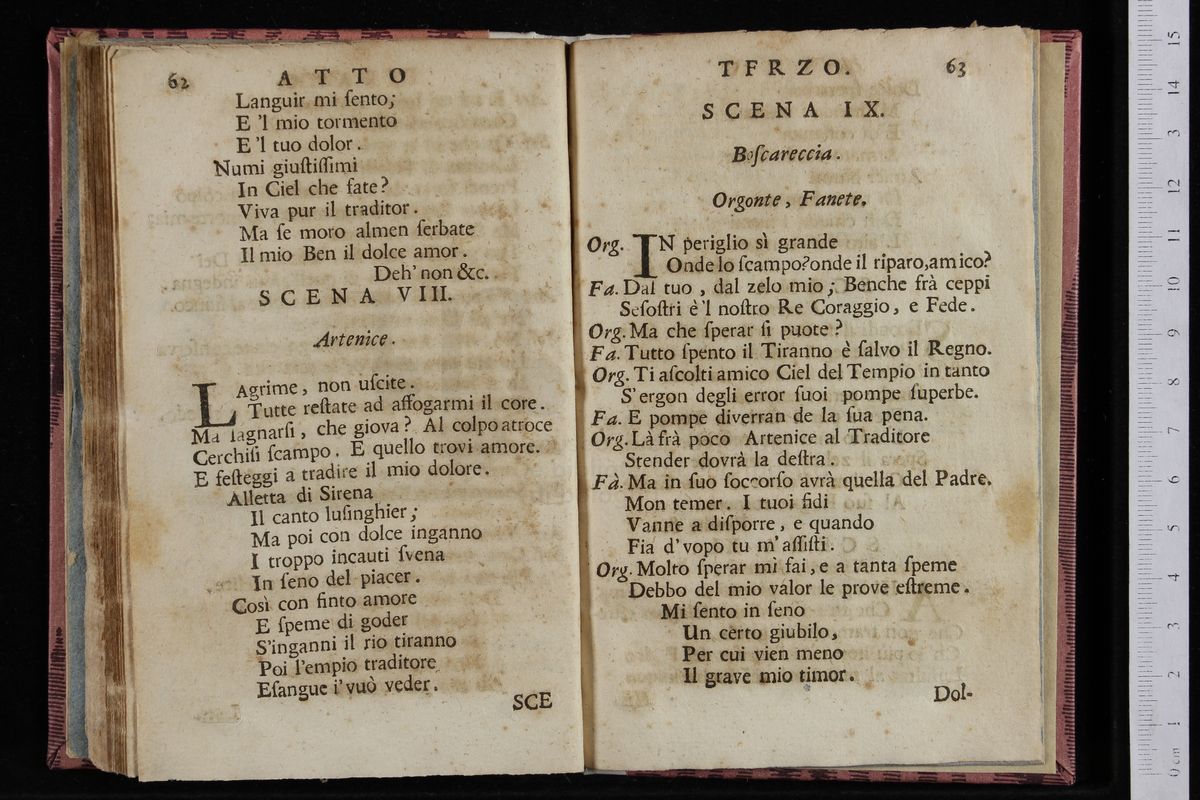 62 ATTO
Languir mi ſento;
E 'l mio tormento
E 'l tuo dolor.
Numi giuſtiſſimi
In Ciel che fate?
Viva pur il traditor.
Ma ſe moro almen ſerbate
Il mio Ben il dolce amor.
Deh' non &c.
SCENA VIII.
Artenice.
LAgrime, non uſcite.
Tutte reſtate ad affogarmi il core.
Ma lagnarſi, che giova? Al colpo atroce
Cerchiſi ſcampo. E quello trovi amore.
E feſteggi a tradire il mio dolore.
Alletta di Sirena
Il canto luſinghier;
Ma poi con dolce inganno
I troppo incauti ſvena
In ſeno del piacer.
Così con finto amore
E ſpeme di goder
S'inganni il rio tiranno
Poi l'empio traditore
Eſangue i' vuò veder.
SCE
TFRZO. 63
SCENA IX.
Boſcareccia.
Orgonte, Fanete.
Org. IN periglio sì grande
Onde lo ſcampo? onde il riparo, amico?
Fa. Dal tuo, dal zelo mio; Benche frà ceppi
Seſoſtri è 'l noſtro Re Coraggio, e Fede.
Org. Ma che ſperar ſi puote?
Fa. Tutto ſpento il Tiranno è ſalvo il Regno.
Org. Ti aſcolti amico Ciel del Tempio in tanto
S'ergon degli error ſuoi pompe ſuperbe.
Fa. E pompe diverran de la ſua pena.
Org. Là frà poco Artenice al Traditore
Stender dovrà la deſtra.
Fà. Ma in ſuo ſoccorſo avrà quella del Padre.
Mon temer. I tuoi fidi
Vanne a diſporre, e quando
Fia d'vopo tu m'aſſiſti.
Org. Molto ſperar mi fai, e a tanta ſpeme
Debbo del mio valor le prove eſtreme.
Mi ſento in ſeno
Un certo giubilo,
Per cui vien meno
Il grave mio timor.
Dol-
15
14
13
12
11
10
9
8
7
6
5
4
3
2
1
0 cm